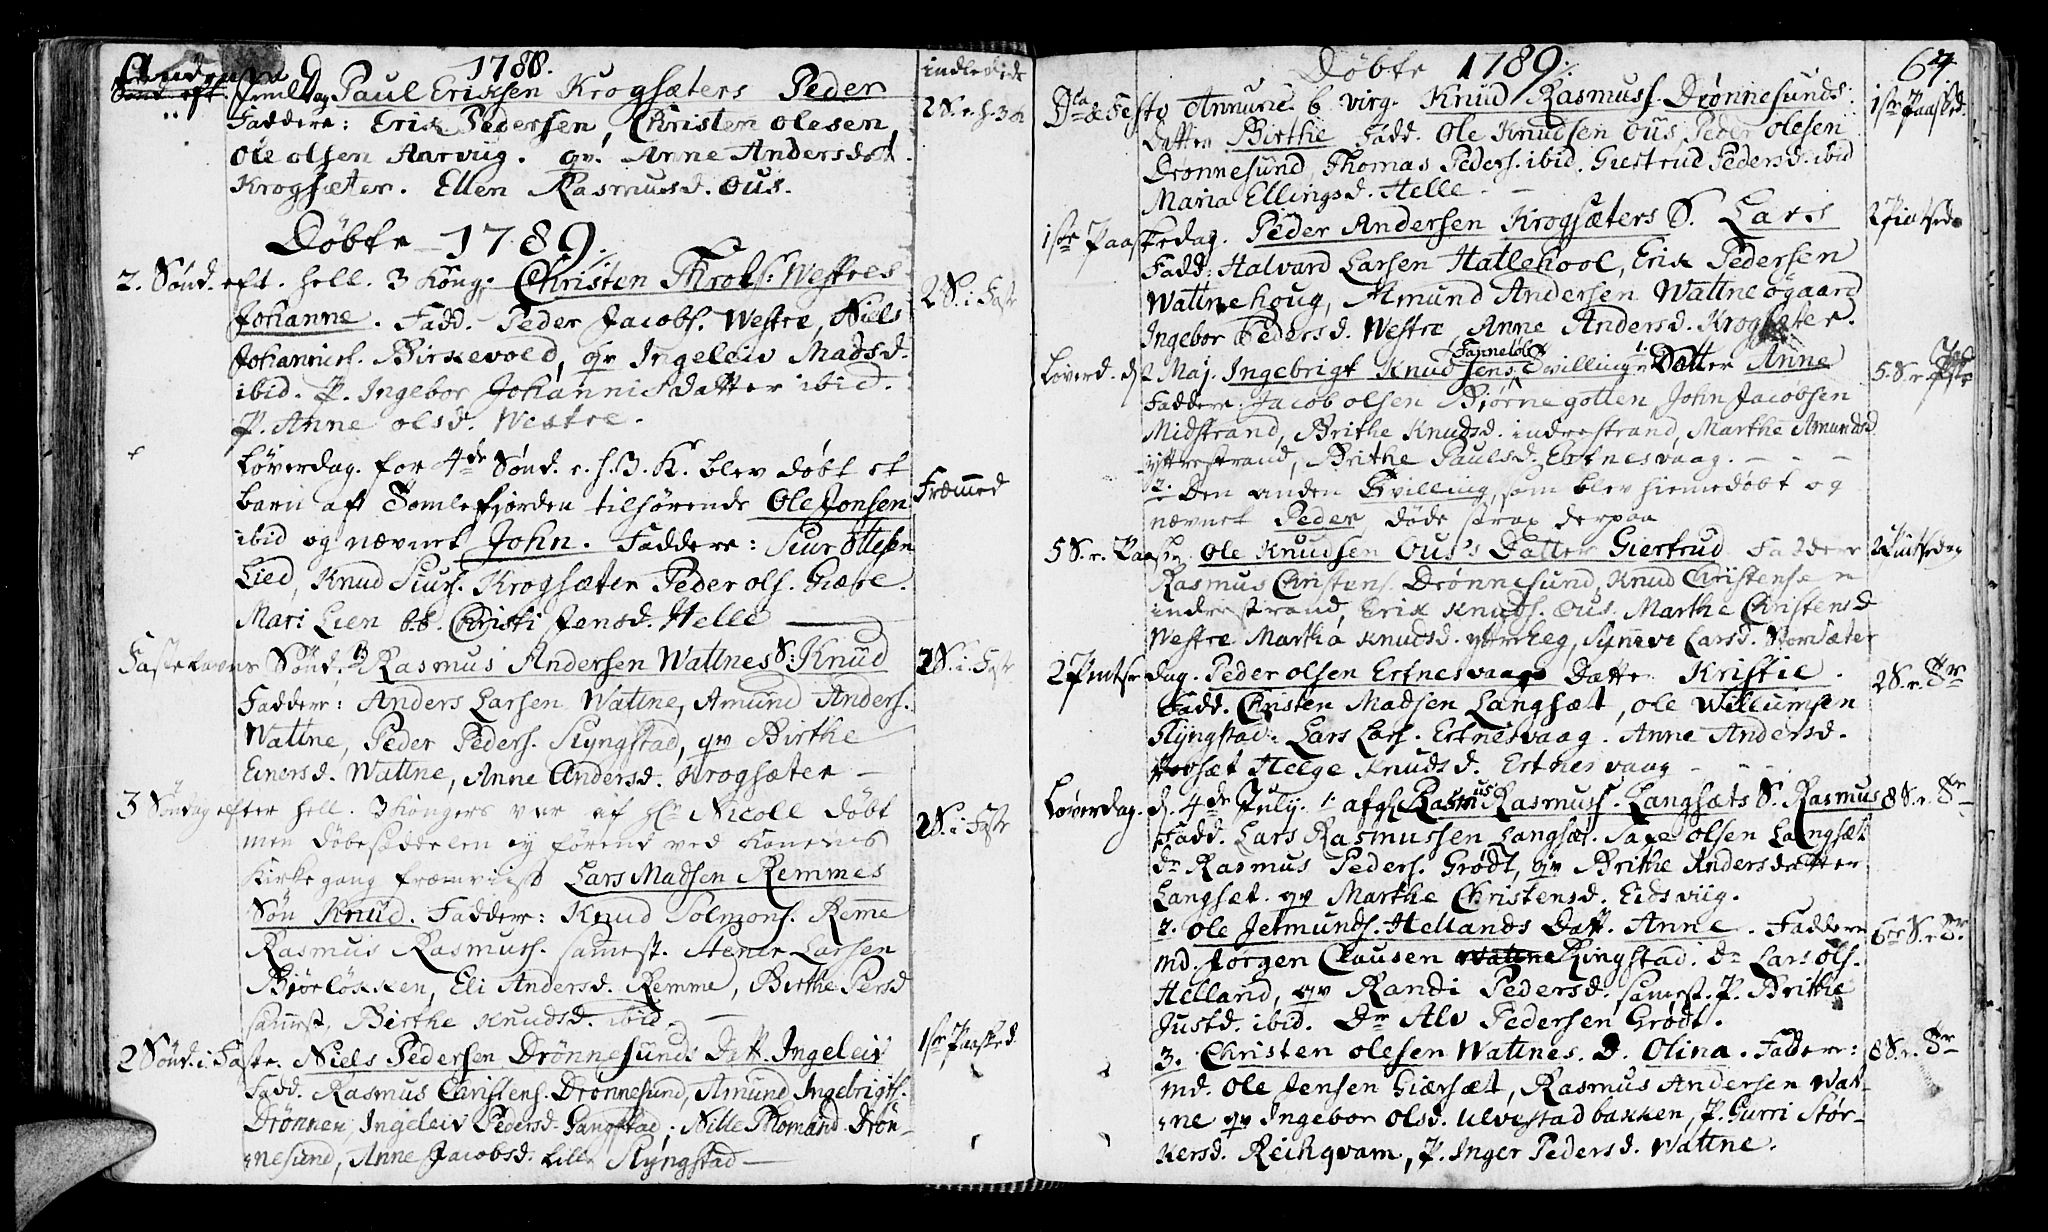 1788.
indledede
Juuldag Paul Eriksen Krogsæters Peder
Faddere: Erik Pedersen, Christen olesen,
Ole olsen Aarviig. qv. Anne Andersdot.
Krogsæter. Ellen Rasmusd. Ous.
Døbte 1789.
2. Sønd. eft. hell. 3 Kong. Christen Throls. Westres
Johanne. Fadd. Peder Jacobs. Westre, Niels
2 S. i Fast
Johannes. Birkevold, qv Ingeleiv Madsd.
ibid. P. Ingebor Johannisdatter ibid.
P. Anne olsd. Westre.
Løverdag for 4de Sønd. e. h. 3. K. blev døbt et
barn aft Tomlefjorden tilhørende Ole Jonsen
Fræmed
ibid og nævnt John. Faddere: Siur Ottesen
Lied, Knud Siurs. Krogsæter Peder ols. Giære.
Mari Lien b.b. Christi Jensd. Helle
Fastelavns Sønd. Rasmus Andersen Wattnes S: Knud
2 S. i. Fast
Faddere: Anders Larsen Wattne, Amund Anders.
Wattne, Peder Peders. Slyngstad, qv Birthe
Einersd. Wattne, Anne Andersd. Krogsæter
3 Søndag efter hell. 3 Kongers var af Hr. Nicoll døbt
men døbesæddelen ey førend ved Konenes
2 S. i Fast
Kirkegang fræmviist Lars Madsen Remmes
Søn Knud. Faddere: Knud Solmons. Remme
Rasmus Rasmus. samest. Stener Larsen
Biørløkken, Eli Andersd. Remme, Birthe Persd
samest, Birthe Knudsd. ibid.
2 Sønd. i Faste. Niels Pedersen Drønnesunds Datt. Ingeleiv
1ste Paasked.
Fadd. Rasmus Christens. Drønnesund, Amund Ingebrigts.
Drønnen, Ingeleiv Pedersd. Gangstad, Nille Thomasd. Drøn-
nesund, Anne Jacobsd. Lille Slyngstad
Døbte 1789.
64
Festo Annunc. b. virg. Knud Rasmuss. Drønnesunds
1ste Paasked.
Datter Birthe Fadd. Ole Knudsen Ous Peder olesen
Drønnesund, Thomas Peders. ibid. Giertrud Pedersd. ibid
Maria Ellingsd. Helle
1ste Paaskedag. Peder Andersen Krogsæters S. Lars
Fadd: Halvard Larsen Hattlehool, Erik Pedersen
Wattnehoug, Amund Andersen Wattneøgaard
Ingebor Pedersd. Westre, Anne Andersd. Krogsæter.
Løverd. d. 2 Maj. Ingebrigt Knudsens Tvilling Datter Anne
Faddere: Jacob olsen Biørnegotten John Jacobsen
Midstrand, Brithe Knudsd. indrestrand, Marthe Amundsd
yttrestrand, Brithe Paulsd. Ertnesvaag.
2. Den anden Tvilling, som blev hiemedøbt og
nævnt Peder døde strax derpaa
5 S. e. Paaske Ole Knudsen Ous's Datter Giertrud Faddere
Rasmus Christens. Drønnesund, Knud Christensen
inderstrand, Erik Knuds. Ous. Marthe Christensd
Westre Martha Knudsd. Synneve Larsd. Storsæter
2 Pintsedag. Peder olsen Ertnesvaags Datter Kristie.
Fadd. Christen Madsen Langsæt, ole Willumsen
Slyngstad. Lars Lars. Ertnesvaag. Anne Andersd.
Helge Knudsd. Ertnesvaag
Løverdag. d. 4de July. 1. afg. Rasmus Rasmuss. Langsæts S. Rasmus
Fadd. Lars Rasmussen Langsæt. olsen Langsæt
Dr. Rasmus Peders. Grødt, qv Brithe Andersdatter
Langset. qv Marthe Christensd. Eidsviig.
2. ole Jetmunds. Hellands Datt. Anne. Faddere
md. Jørgen Clausen Ringstad. Dr. Lars ols.
Helland, qv Randi Pedersd. samest. P. Brithe
Justd. ibid. Dr Alv Pedersen Grødt.
3. Christen olesen Wattnes. D. Olina. Faddere:
md. Ole Jensen Giærsæt, Rasmus Andersen Wat-
ne qv Ingebor Olsd. Ulvestadbakken, P. Gurri Stør-
kersd. Reihqvam, P. Inger Pedersd. Wattne.